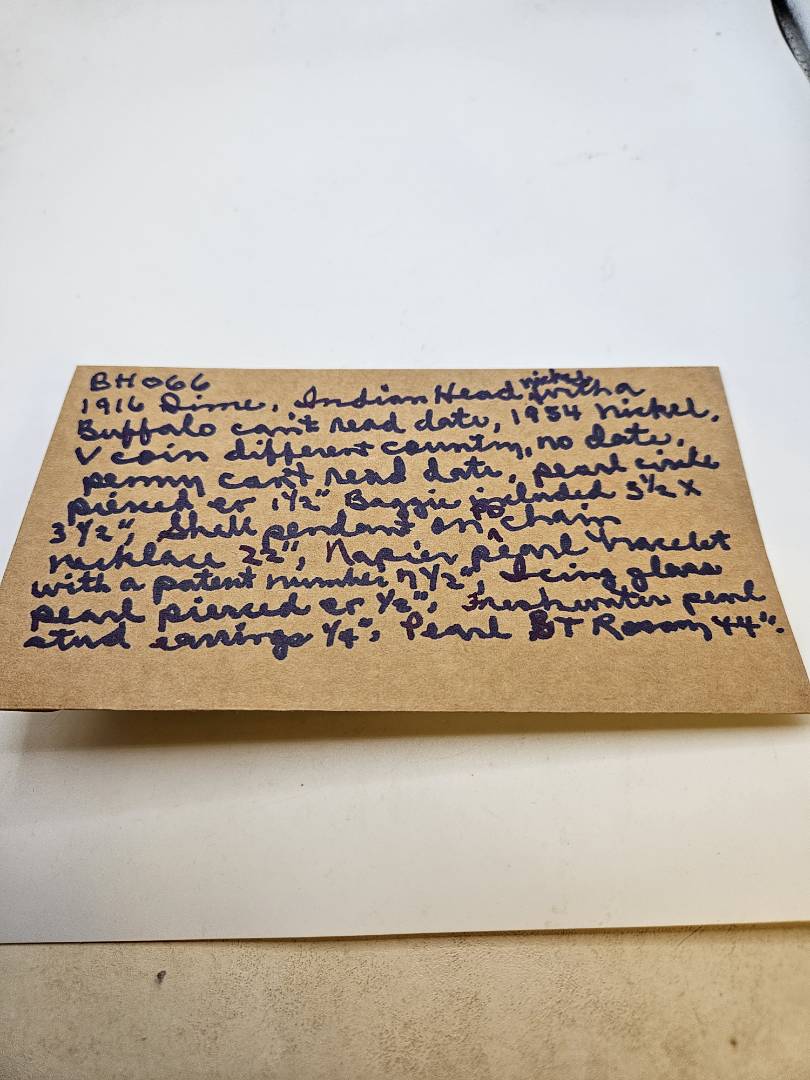 BH066
1916 Dime, Indian Head nickel with a
Buffalo can't read date, 1954 nickel,
V coin different country, no date,
penny can't read date, pearl circle
pierced er 1 1/2" Baggie included 3 1/2 x
3 1/2", Shell pendant on chain
necklace 22", Napier pearl bracelet
with a patent number 7 1/2", Icing glass
pearl pierced er 1/2", Freshwater pearl
stud earrings 1/4", Pearl ST Rosary 44".